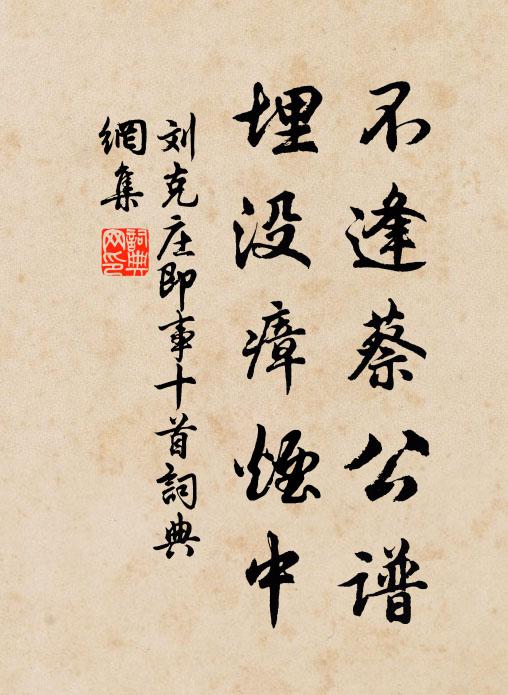 不逢蔡公谱
埋没瘴煙中
刘克庄即事十首詞典
網集
詞典网印